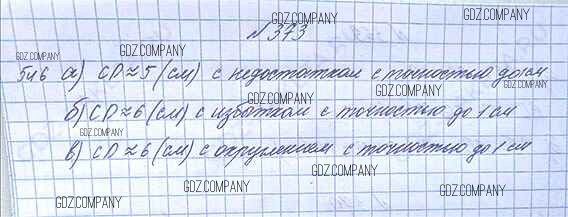 GDZ.COMPANY
№ 373
GDZ.COMPANY GDZ.COMPANY
GDZ.COMPANY
546 а) CD ≈ 5 (см) с недостатком с точностью до 1 см
GDZ.COMPANY GDZ.COMPANY
GDZ.COMPANY
б) CD ≈ 6 (см) с избытком с точностью до 1 см
GDZ.COMPANY GDZ.COMPANY
в) CD ≈ 6 (см) с округлением с точностью до 1 см
GDZ.COMPANY
GDZ.COMPANY
GDZ.COMPANY GDZ.COMPANY